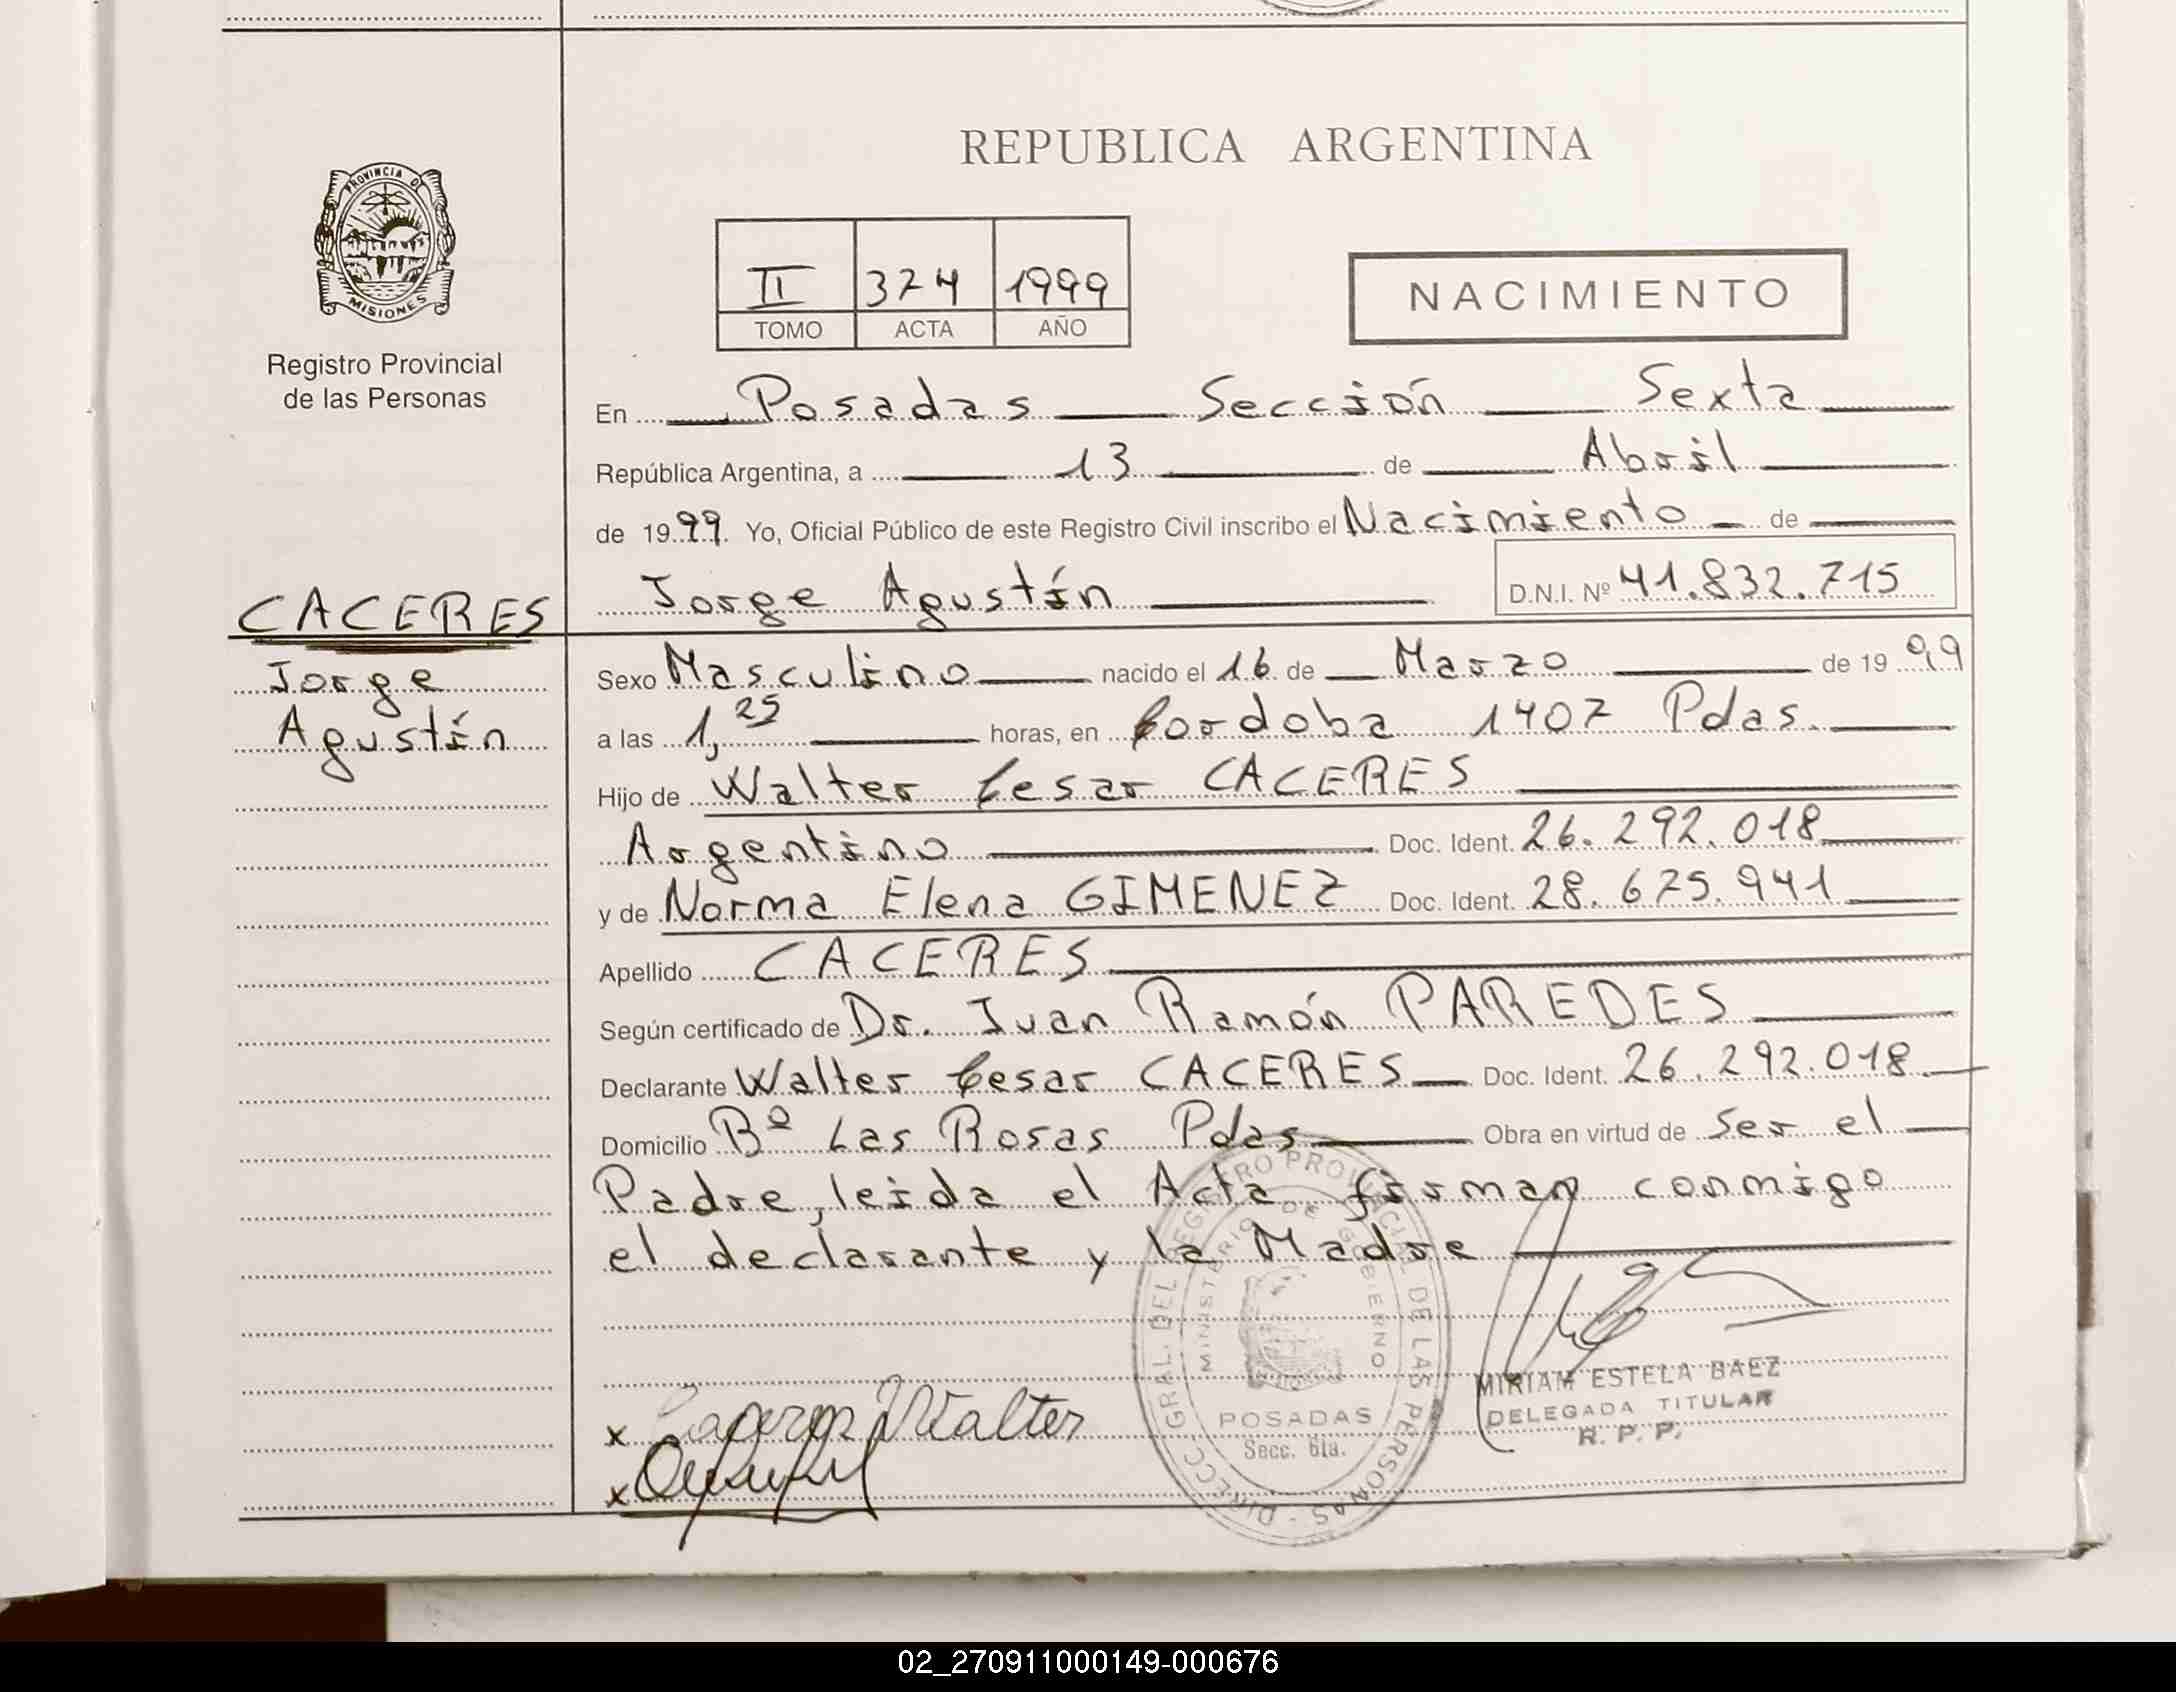 REPUBLICA ARGENTINA
PROVINCIA DE
MISIONES
Registro Provincial
de las Personas
II 374 1999
TOMO ACTA AÑO
NACIMIENTO
En Posadas Sección Sexta
República Argentina, a 13 de Abril
de 1999 Yo, Oficial Público de este Registro Civil inscribo el Nacimiento de
Jorge Agustín D.N.I. Nº 41.832.715
CACERES
Jorge
Agustín
Sexo Masculino nacido el 16 de Marzo de 1999
a las 1,25 horas, en Cordoba 1407 Pdas.
Hijo de Walter Cesar CACERES
Argentino Doc. Ident. 26.292.018
y de Norma Elena GIMENEZ Doc. Ident. 28.675.941
Apellido CACERES
Según certificado de Dr. Juan Ramón PAREDES
Declarante Walter Cesar CACERES Doc. Ident. 26.292.018
Domicilio Bº Las Rosas Pdas Obra en virtud de Ser el
Padre, leida el Acta firman conmigo
el declarante y la Madre
DIRECC. GRAL. DEL REGISTRO PROVINCIAL DE LAS PERSONAS
MINISTERIO DE GOBIERNO
POSADAS
Secc. 6ta.
MIRIAM ESTELA BAEZ
DELEGADA TITULAR
R. P. P.
x Caceres Walter
x
02_270911000149-000676